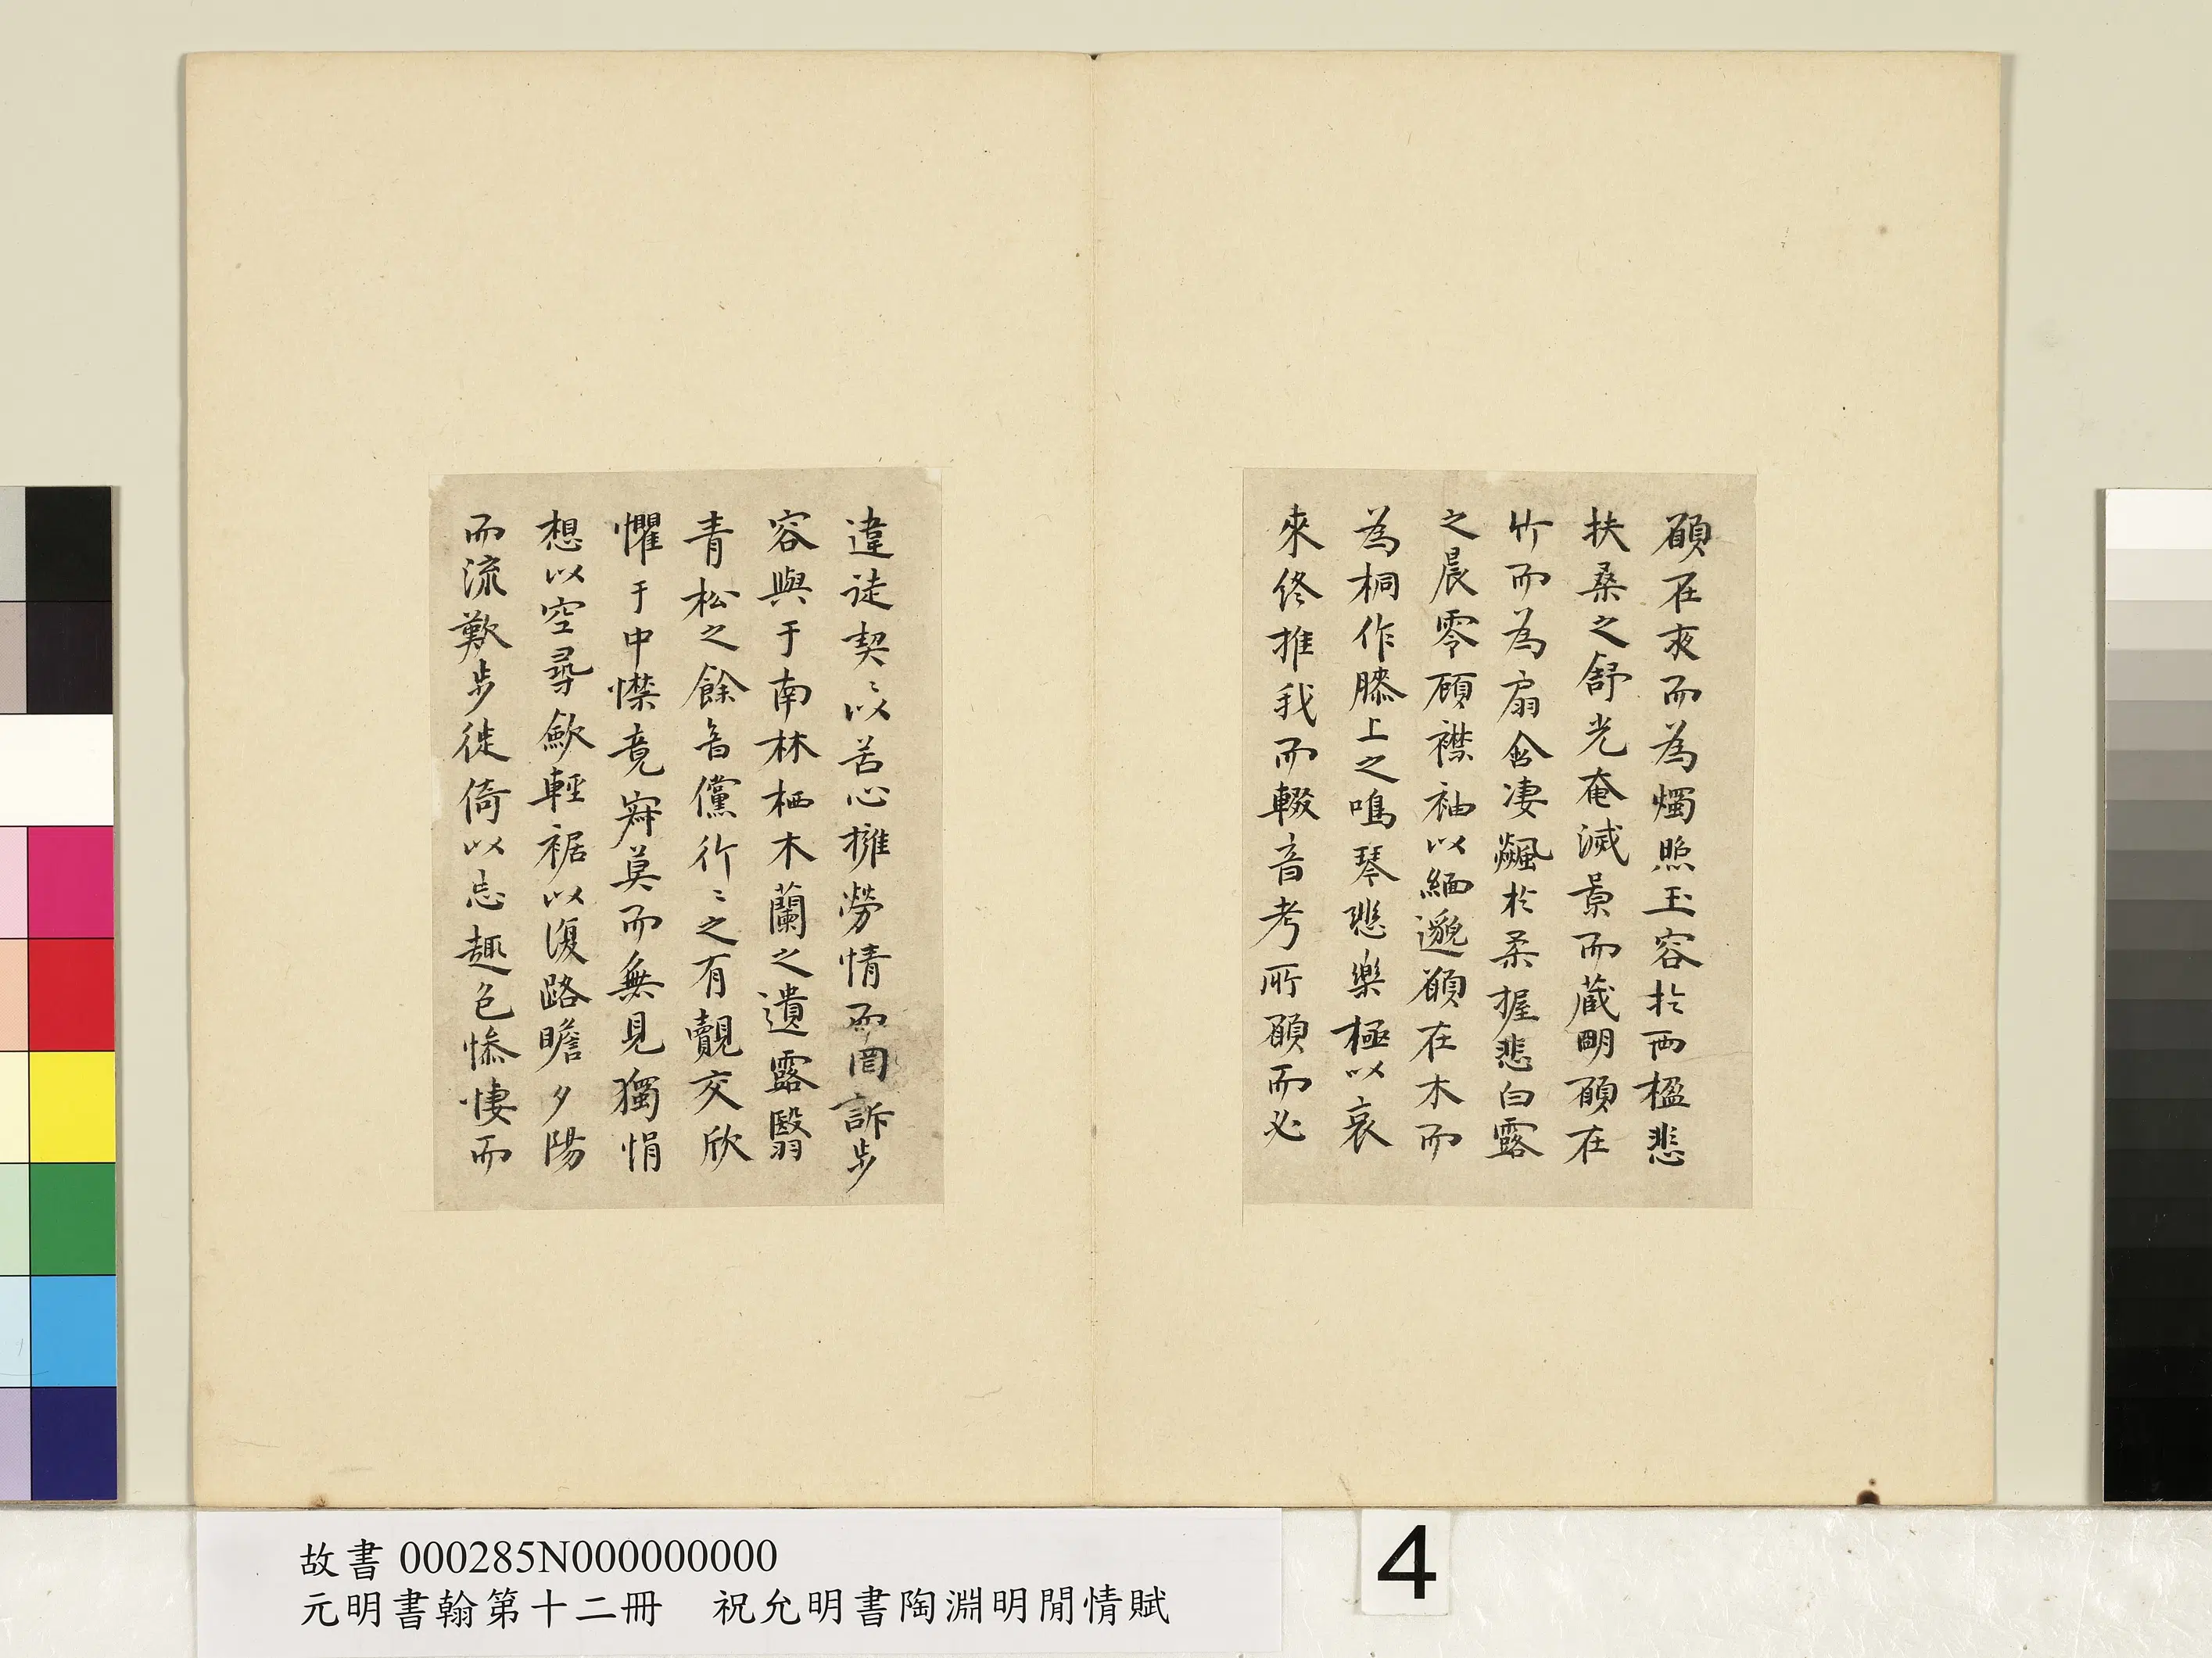 願在夜而為燭照玉容於兩楹悲
扶桑之舒光奄滅景而藏明願在
竹而為扇含淒飇於柔握悲白露
之晨零顧襟袖以緬邈願在木而
為桐作膝上之鳴琴悲樂極以哀
來終推我而輟音考所願而必
違徒契〻以苦心擁勞情而罔訴步
容與于南林栖木蘭之遺露翳
青松之餘音儻行〻之有覿交欣
懼于中襟竟寂莫而無見獨悁
想以空尋歛輕裾以復路瞻夕陽
而流歎步徙倚以忘趣色慘悽而
故書 000285N000000000
元明書翰第十二冊 祝允明書陶淵明閒情賦
4